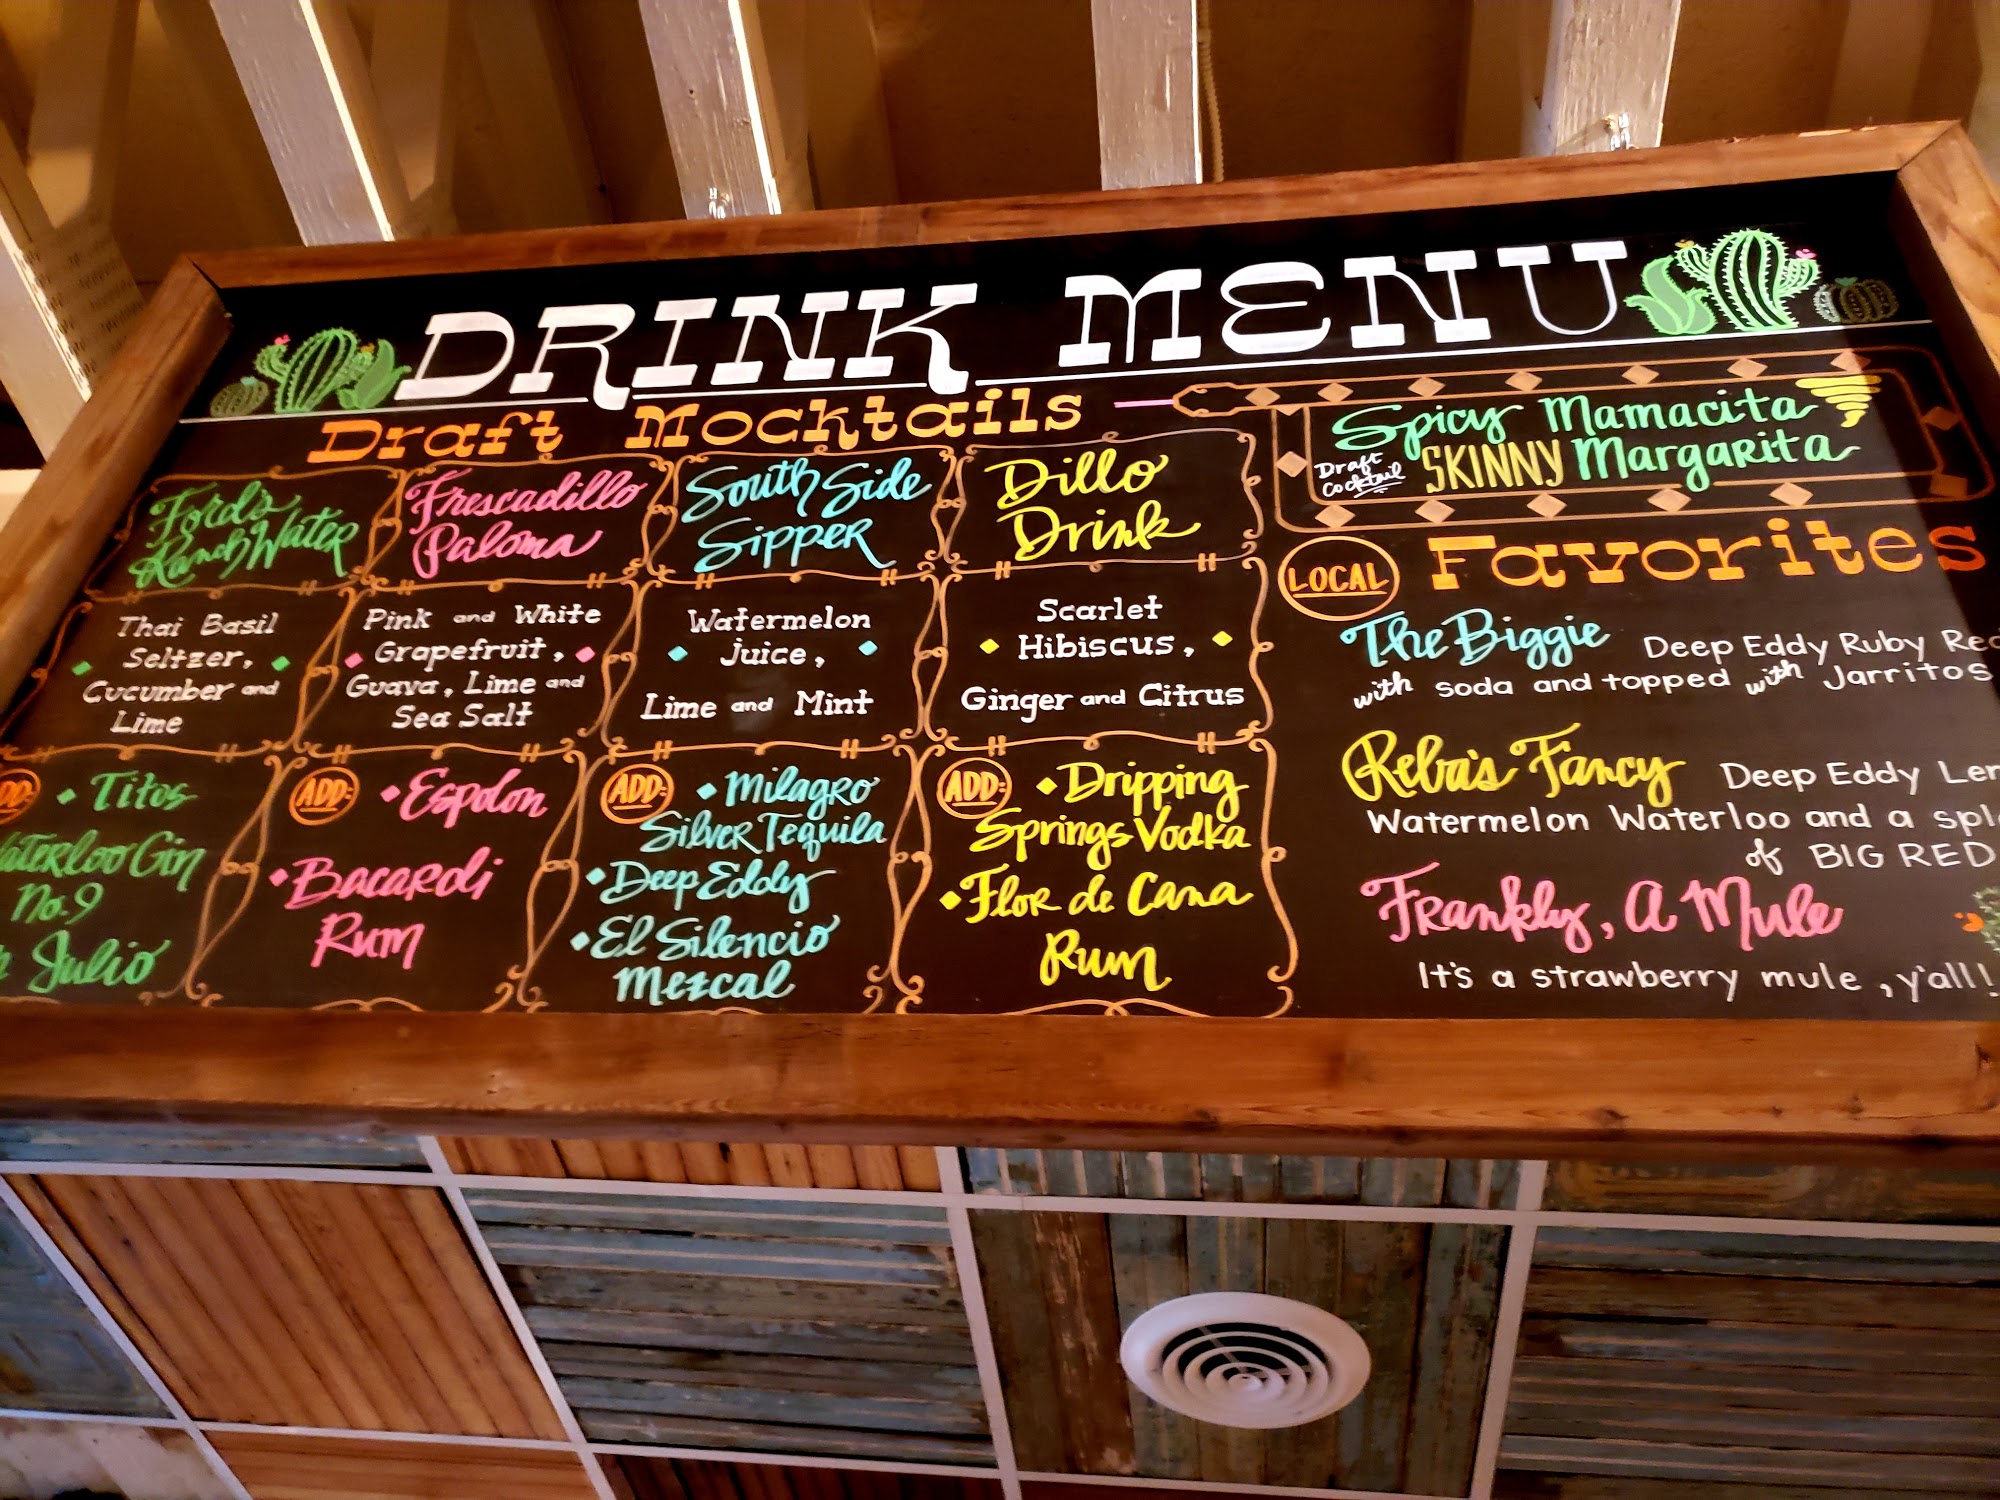 DRINK MENU
Draft Mocktails
Ford's
Ranch Water
Thai Basil
Seltzer,
Cucumber and
Lime
Titos
Gin
No.9
Julio
Frescadillo
Paloma
Pink and White
Grapefruit,
Guava, Lime and
Sea Salt
ADD:
Espolon
Bacardi
Rum
South Side
Sipper
Watermelon
Juice,
Lime and Mint
ADD:
Milagro
Silver Tequila
Deep Eddy
El Silencio
Mezcal
Dillo
Drink
Scarlet
Hibiscus,
Ginger and Citrus
ADD:
Dripping
Springs Vodka
Flor de Cana
Rum
Spicy Mamacita
Draft
Cocktail
SKINNY Margarita
LOCAL
Favorites
The Biggie Deep Eddy Ruby
with soda and topped with Jarritos
Reba's Fancy Deep Eddy
Watermelon Waterloo and a
of BIG RED
Frankly, A Mule
It's a strawberry mule, y'all!